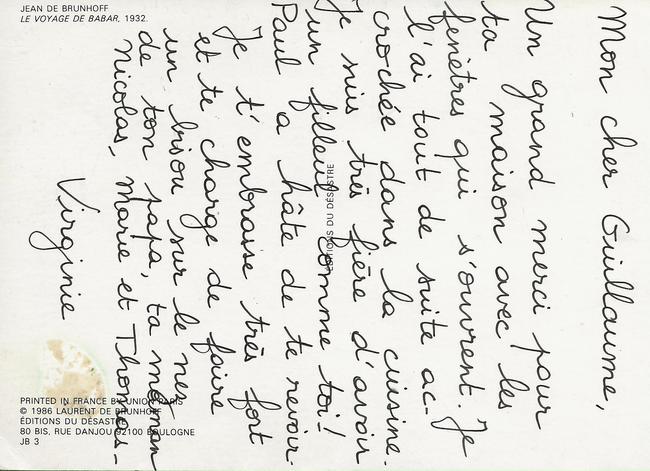 JEAN DE BRUNHOFF
LE VOYAGE DE BABAR, 1932.
Mon cher Guillaume,
Un grand merci pour
ta maison avec les
fenêtres qui s'ouvrent. Je
l'ai tout de suite ac-
crochée dans la cuisine.
Je suis très fière d'avoir
un filleul comme toi!
Paul a hâte de te revoir.
Je t'embrasse très fort
et te charge de faire
un bisou sur le nez
de ton papa, ta maman
Nicolas, Marie et Thomas-
Virginie
ÉDITIONS DU DÉSASTRE
PRINTED IN FRANCE BY UNION PARIS
© 1986 LAURENT DE BRUNHOFF
ÉDITIONS DU DÉSASTRE
80 BIS, RUE DANJOU 92100 BOULOGNE
JB 3